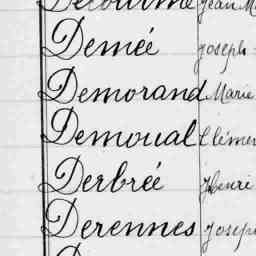 Decourme Jean M
Demée Joseph
Demorand Marie
Demoual Clémen
Derbrée Henri
Derennes Joseph